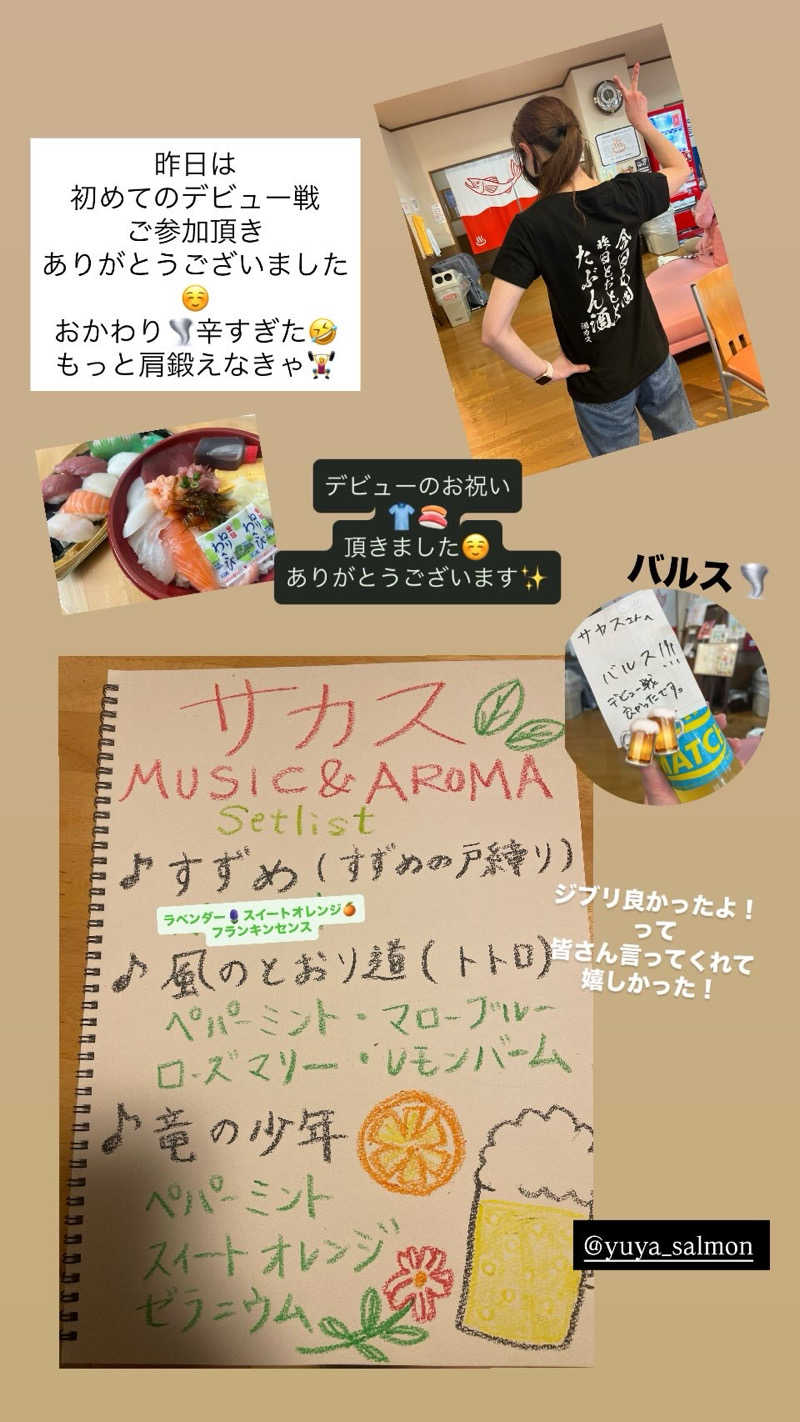 昨日は
初めてのデビュー戦
ご参加頂き
ありがとうございました
☺️
おかわり🌪️辛すぎた🤣
もっと肩鍛えなきゃ🏋️
今日も
昨日とおなじ
たぶん酒
デビューのお祝い
👕🍣
頂きました☺️
ありがとうございます✨
バルス🌪️
サカスさんへ
バルス!!!
デビュー戦
良かったです。
MATCH
サカス
MUSIC & AROMA
Setlist
♪すずめ(すずめの戸締り)
ラベンダー🪻スイートオレンジ🍊
フランキンセンス
♪風のとおり道(トトロ)
ペパーミント・マローブルー
ローズマリー・レモンバーム
♪竜の少年
ペパーミント
スイートオレンジ
ゼラニウム
ジブリ良かったよ！
って
皆さん言ってくれて
嬉しかった！
@yuya_salmon